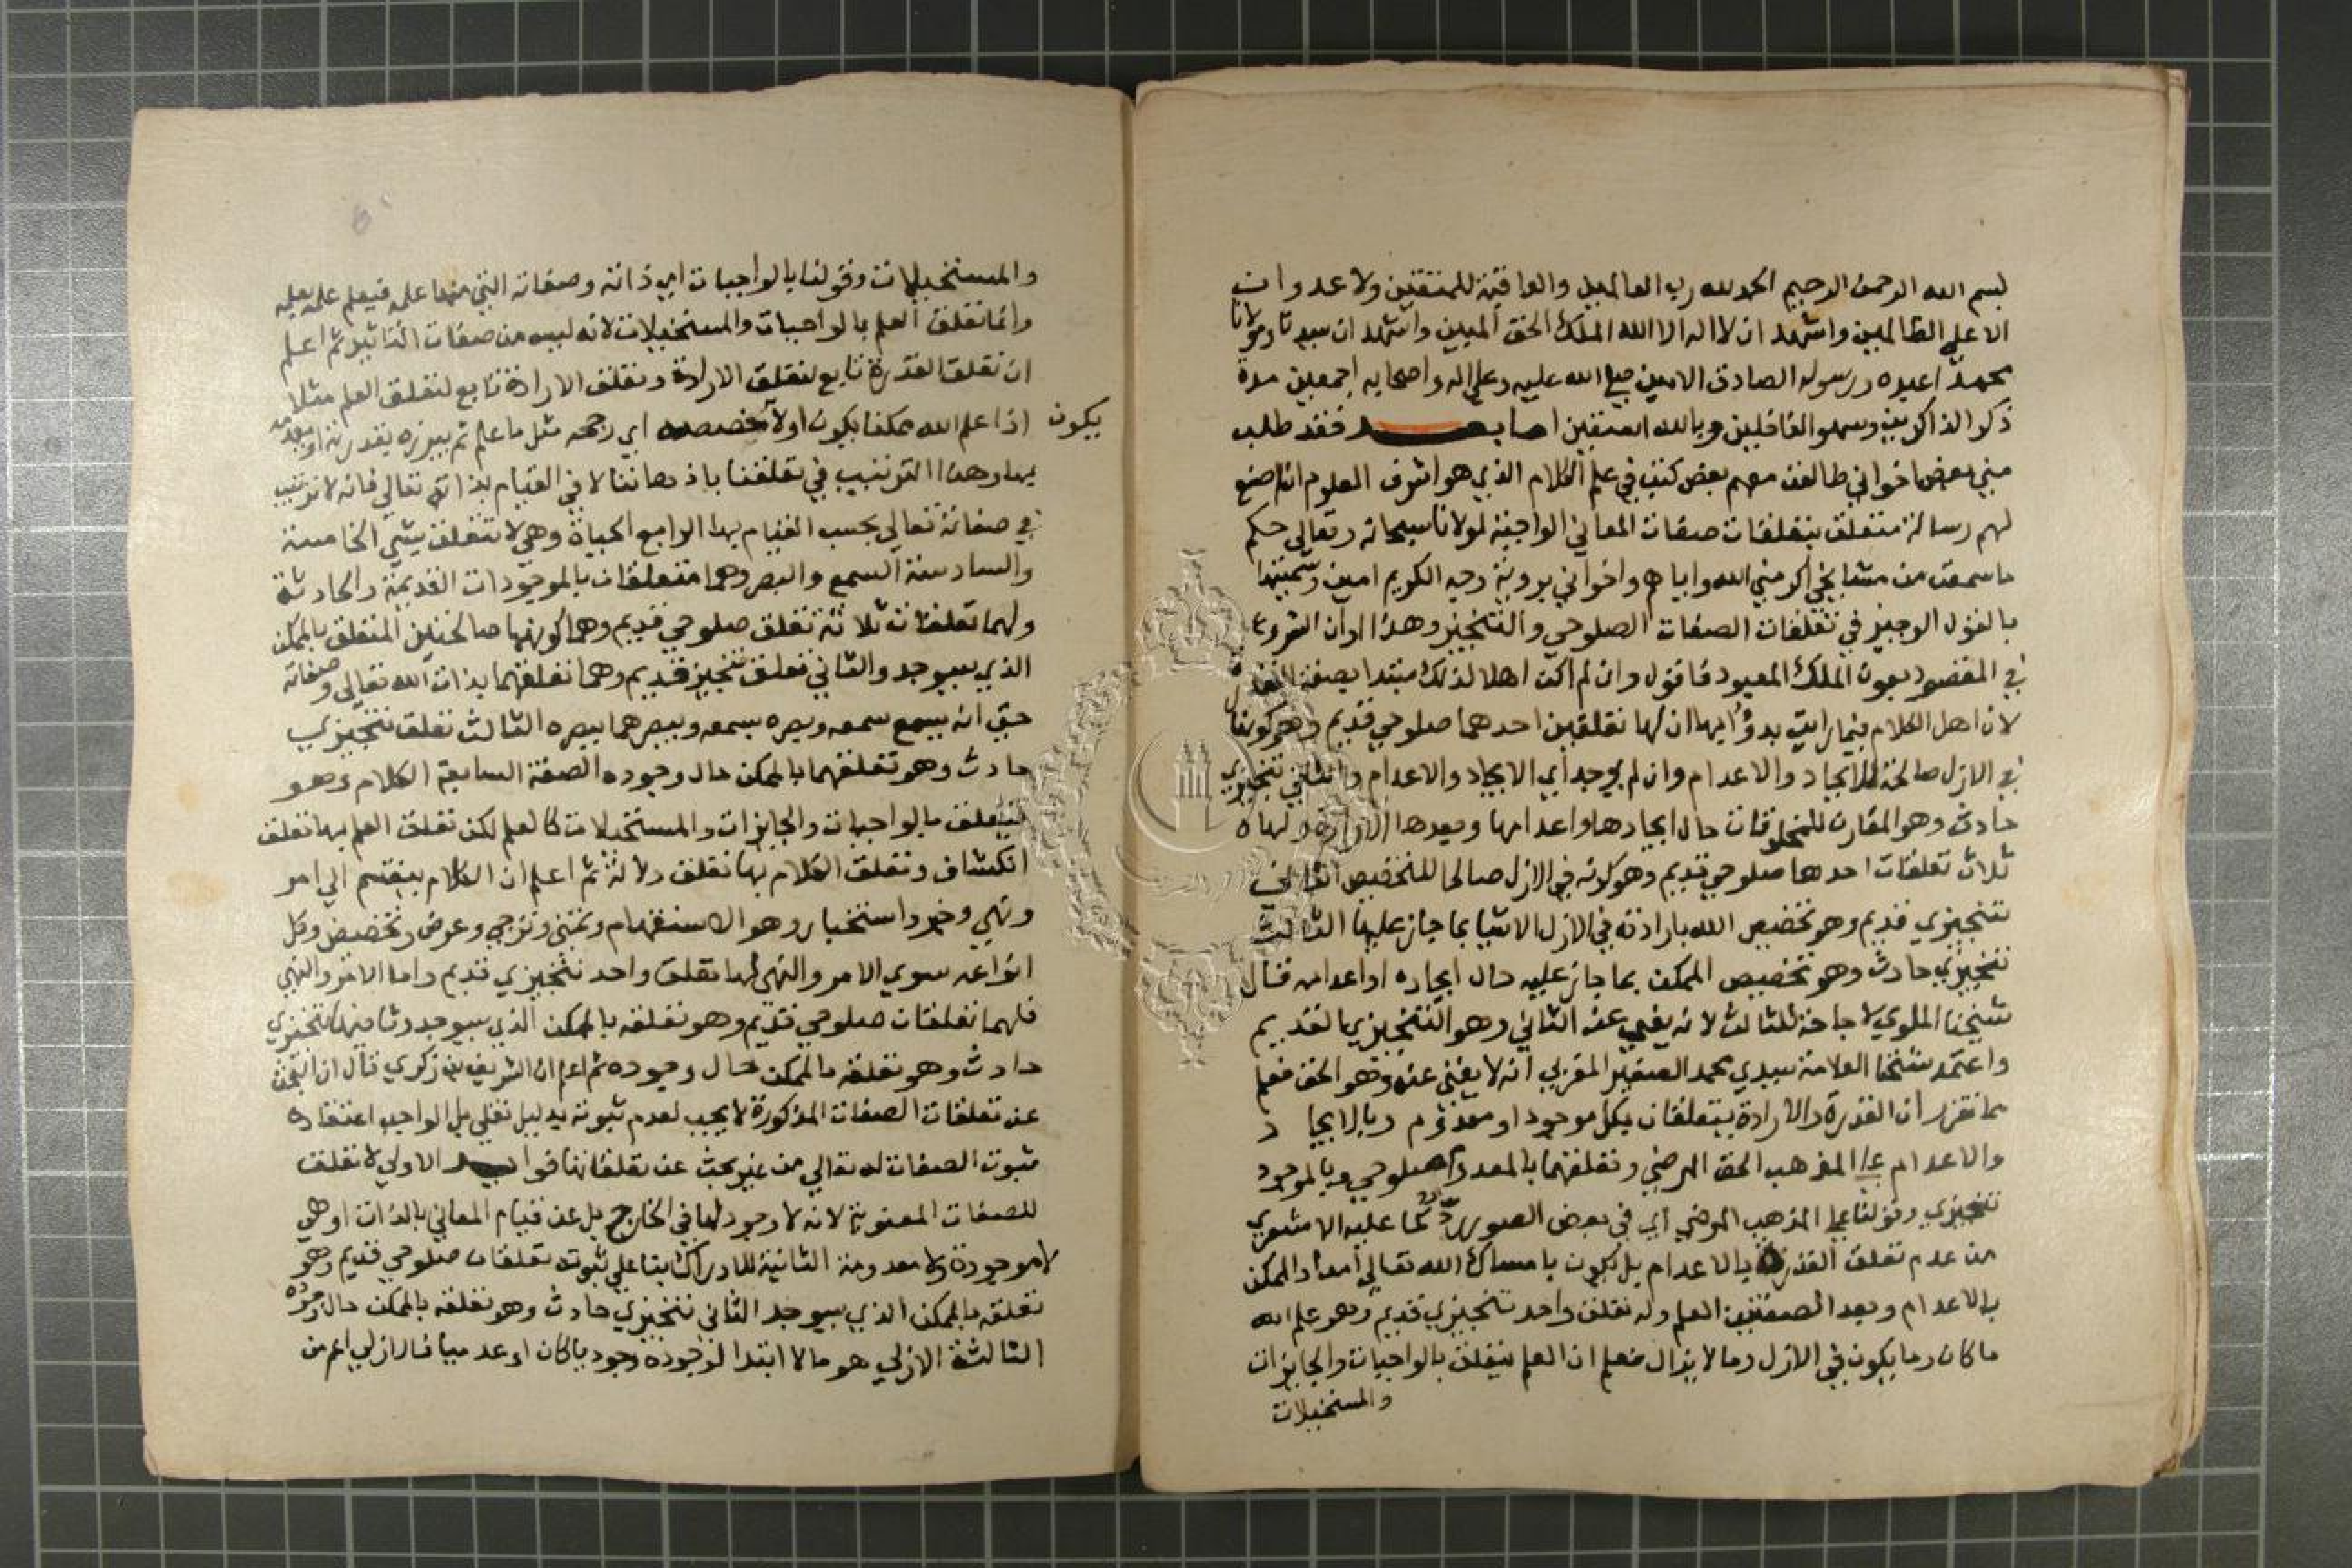 بسم الله الرحمن الرحيم الحمد لله رب العالمين والعاقبة للمتقين ولا عدوان
الا علي الظالمين واشهد ان لا اله الا الله الملك الحق المبين واشهد ان سيدنا ومولانا
محمدا عبده ورسوله الصادق الامين صلي الله عليه وعلي اله واصحابه اجمعين مدة
ذكر الذاكرين وسهو الغافلين وبالله استعين اما بعد فقد طلب
مني بعض اخواني طالعت معهم بعض كتب في علم الكلام الذي هو اشرف العلوم ان اصنع
لهم رسالة تتعلق بتعلقات صفات المعاني الواجبة لمولانا سبحانه وتعالي حكم
ما سمعت من مشايخي اكرمني الله واياهم واخواني بروية وجهه الكريم امين وسميتها
بالقول الوجيز في تعلقات الصفات الصلوحي والتنجيز وهذا اوان الشروع
في المقصود بعون الملك المعبود فاقول وان لم اكن اهلا لذلك مبتدا بصفة القدرة
لان اهل الكلام فيما رايت بدؤا بها ان لها تعلقين احدهما صلوحي قديم وهو كونها
في الازل صالحة للايجاد والاعدام وان لم يوجد اي الايجاد والاعدام والثاني تنجيزي
حادث وهو المقارن للمخلوقات حال ايجادها واعدامها وبعدها الارادة ولها
ثلاث تعلقات احدها صلوحي قديم وهو كونه في الازل صالحا للتخصيص الثاني
تنجيزي قديم وهو تخصيص الله بارادته في الازل الاشيا بما جاز عليها الثالث
تنجيزي حادث وهو تخصيص الممكن بما جاز عليه حال ايجاده او اعدامه قال
شيخنا الملوي لا حاجة للثالث لانه يغني عنه الثاني وهو التنجيزي القديم
واعتمد شيخنا العلامة سيدي محمد الصغير المغربي انه لا يغني عنه وهو الحق فعلم
مما تقرر ان القدرة والارادة يتعلقان بكل موجود او معدوم وبالايجاد
والاعدام علي المذهب الحق المرضي وتعلقهما بالمعدوم صلوحي وبالموجود
تنجيزي وقولنا علي المذهب المرضي اي في بعض الصور ردا لما عليه الاشعري
من عدم تعلق القدرة بالاعدام بل يكون بامساك الله تعالي امداد الممكن
بالاعدام وبعد الصفتين العلم وله تعلق واحد تنجيزي قديم وهو علم الله
ما كان وما يكون في الازل وما لا يزال فعلم ان العلم يتعلق بالواجبات والجايزات
والمستحيلات
والمستحيلات وقولنا بالواجبات اي ذاته وصفاته التي منها علمه فيعلم علمه بعلمه
وانما تعلق العلم بالواجبات والمستحيلات لانه ليس من صفات التاثير ثم اعلم
ان تعلق القدرة تابع لتعلق الارادة وتعلق الارادة تابع لتعلق العلم مثلا
اذا علم الله ممكنا يكون اولا خصصه اي رجحه مثل ما علم ثم يبرزه بقدرته او يعدمه
يكون
بها وهذا الترتيب في تعلقنا باذهاننا لا في القيام بذاته تعالي فانه لا ترتيب
في صفاته تعالي بحسب القيام بها الرابع الحياة وهي لا تتعلق بشي الخامسة
والسادسة السمع والبصر وهما متعلقان بالموجودات القديمة والحادثة
ولهما تعلقات ثلاثة تعلق صلوحي قديم وهما كونهما صالحتين المتعلق بالممكن
الذي سيوجد والثاني تعلق تنجيز قديم وهما تعلقهما بذات الله تعالي وصفاته
حتي انه يسمع سمعه وبصره بسمعه ويبصرهما ببصره الثالث تعلق تنجيزي
حادث وهو تعلقهما بالممكن حال وجوده الصفة السابعة الكلام وهو
يتعلق بالواجبات والجايزات والمستحيلات كالعلم لكن تعلق العلم بها تعلق
انكشاف وتعلق الكلام بها تعلق دلالة ثم اعلم ان الكلام ينقسم الي امر
ونهي وخبر واستخبار وهو الاستفهام وتمني وترجي وعرض وتخضيض وكل
انواعه سوي الامر والنهي لها تعلق واحد تنجيزي قديم واما الامر والنهي
فلهما تعلقات صلوحي قديم وهو تعلقه بالممكن الذي سيوجد وثانيهما تنجيزي
حادث وهو تعلقه بالممكن حال وجوده ثم اعلم ان الشريف بن زكري قال ان البحث
عن تعلقات الصفات المذكورة لا يجب لعدم ثبوته بدليل نقلي بل الواجب اعتقاده
ثبوت الصفات له تعالي من غير بحث عن تعلقاتها فوايد الاولي لا تعلق
للصفات المعنوية لانه لا وجود لها في الخارج بل عن قيام المعاني بالذات او هي
لا موجودة ولا معدومة الثانية للادراك بنا علي ثبوته تعلقات صلوحي قديم وهو
تعلقه بالممكن الذي سيوجد الثاني تنجيزي حادث وهو تعلقه بالممكن حال وجوده
الثالثة الازلي هو ما لا ابتدا لوجوده وجوديا كان او عدميا فالازلي اعم من